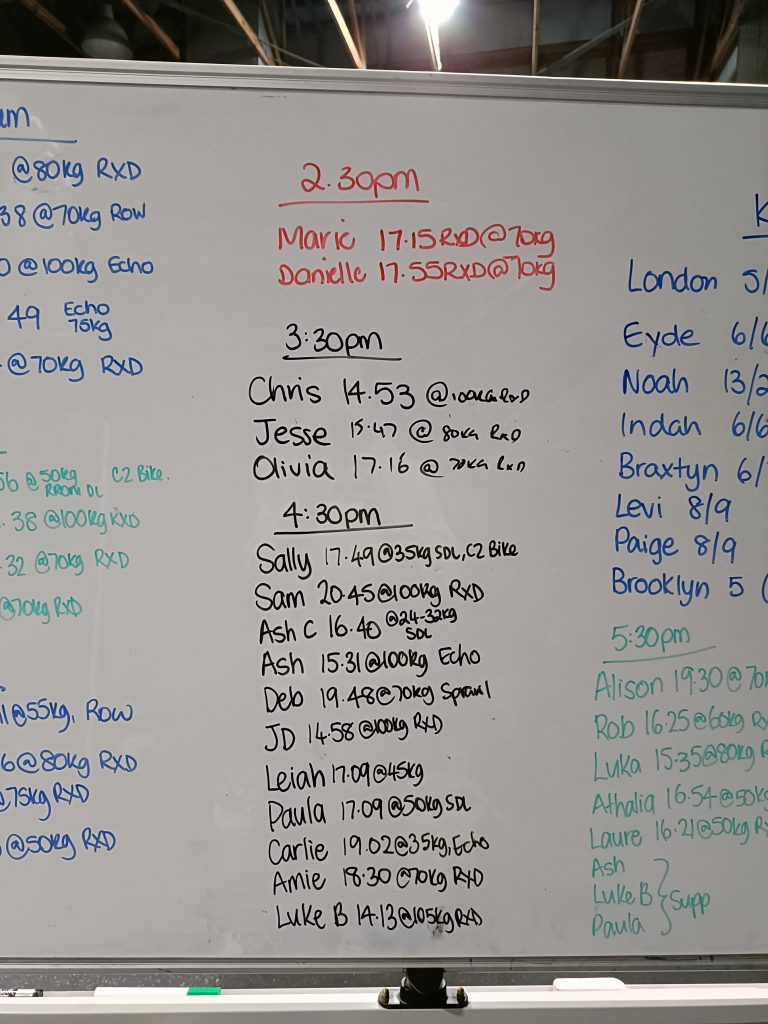 um
@80kg RXD
38 @70kg Row
0 @100kg Echo
49 Echo
75kg
@70kg RXD
56 @50kg C2 Bike.
RROM DL
.38 @100kg RXD
.32 @70kg RXD
@70kg RXD
@55kg, Row
6@80kg RXD
@75kg RXD
@50kg RXD
2.30pm
Marie 17.15 RXD@70kg
Danielle 17.55RXD@70kg
3:30pm
Chris 14.53 @100kg RxD
Jesse 15.47 @ 80kg RxD
Olivia 17.16 @ 70kg RxD
4:30pm
Sally 17.49@35kg SDL, C2 Bike
Sam 20.45@100kg RXD
Ash C 16.40 @24-32kg
SDL
Ash 15.31@100kg Echo
Deb 19.48@70kg Sprawl
JD 14.58@100kg RXD
Leiah 17.09@45kg
Paula 17.09@50kg SDL
Carlie 19.02@35kg, Echo
Amie 18.30 @70kg RXD
Luke B 14.13@105kg RXD
K
London 5/
Eyde 6/6
Noah 13/2
Indah 6/6
Braxtyn 6/
Levi 8/9
Paige 8/9
Brooklyn 5 (
5:30pm
Alison 19.30@70k
Rob 16.25@60kg RX
Luka 15.35@80kg R
Athalia 16.54@50kg
Laure 16.21@50kg Rx
Ash
Luke B Supp
Paula